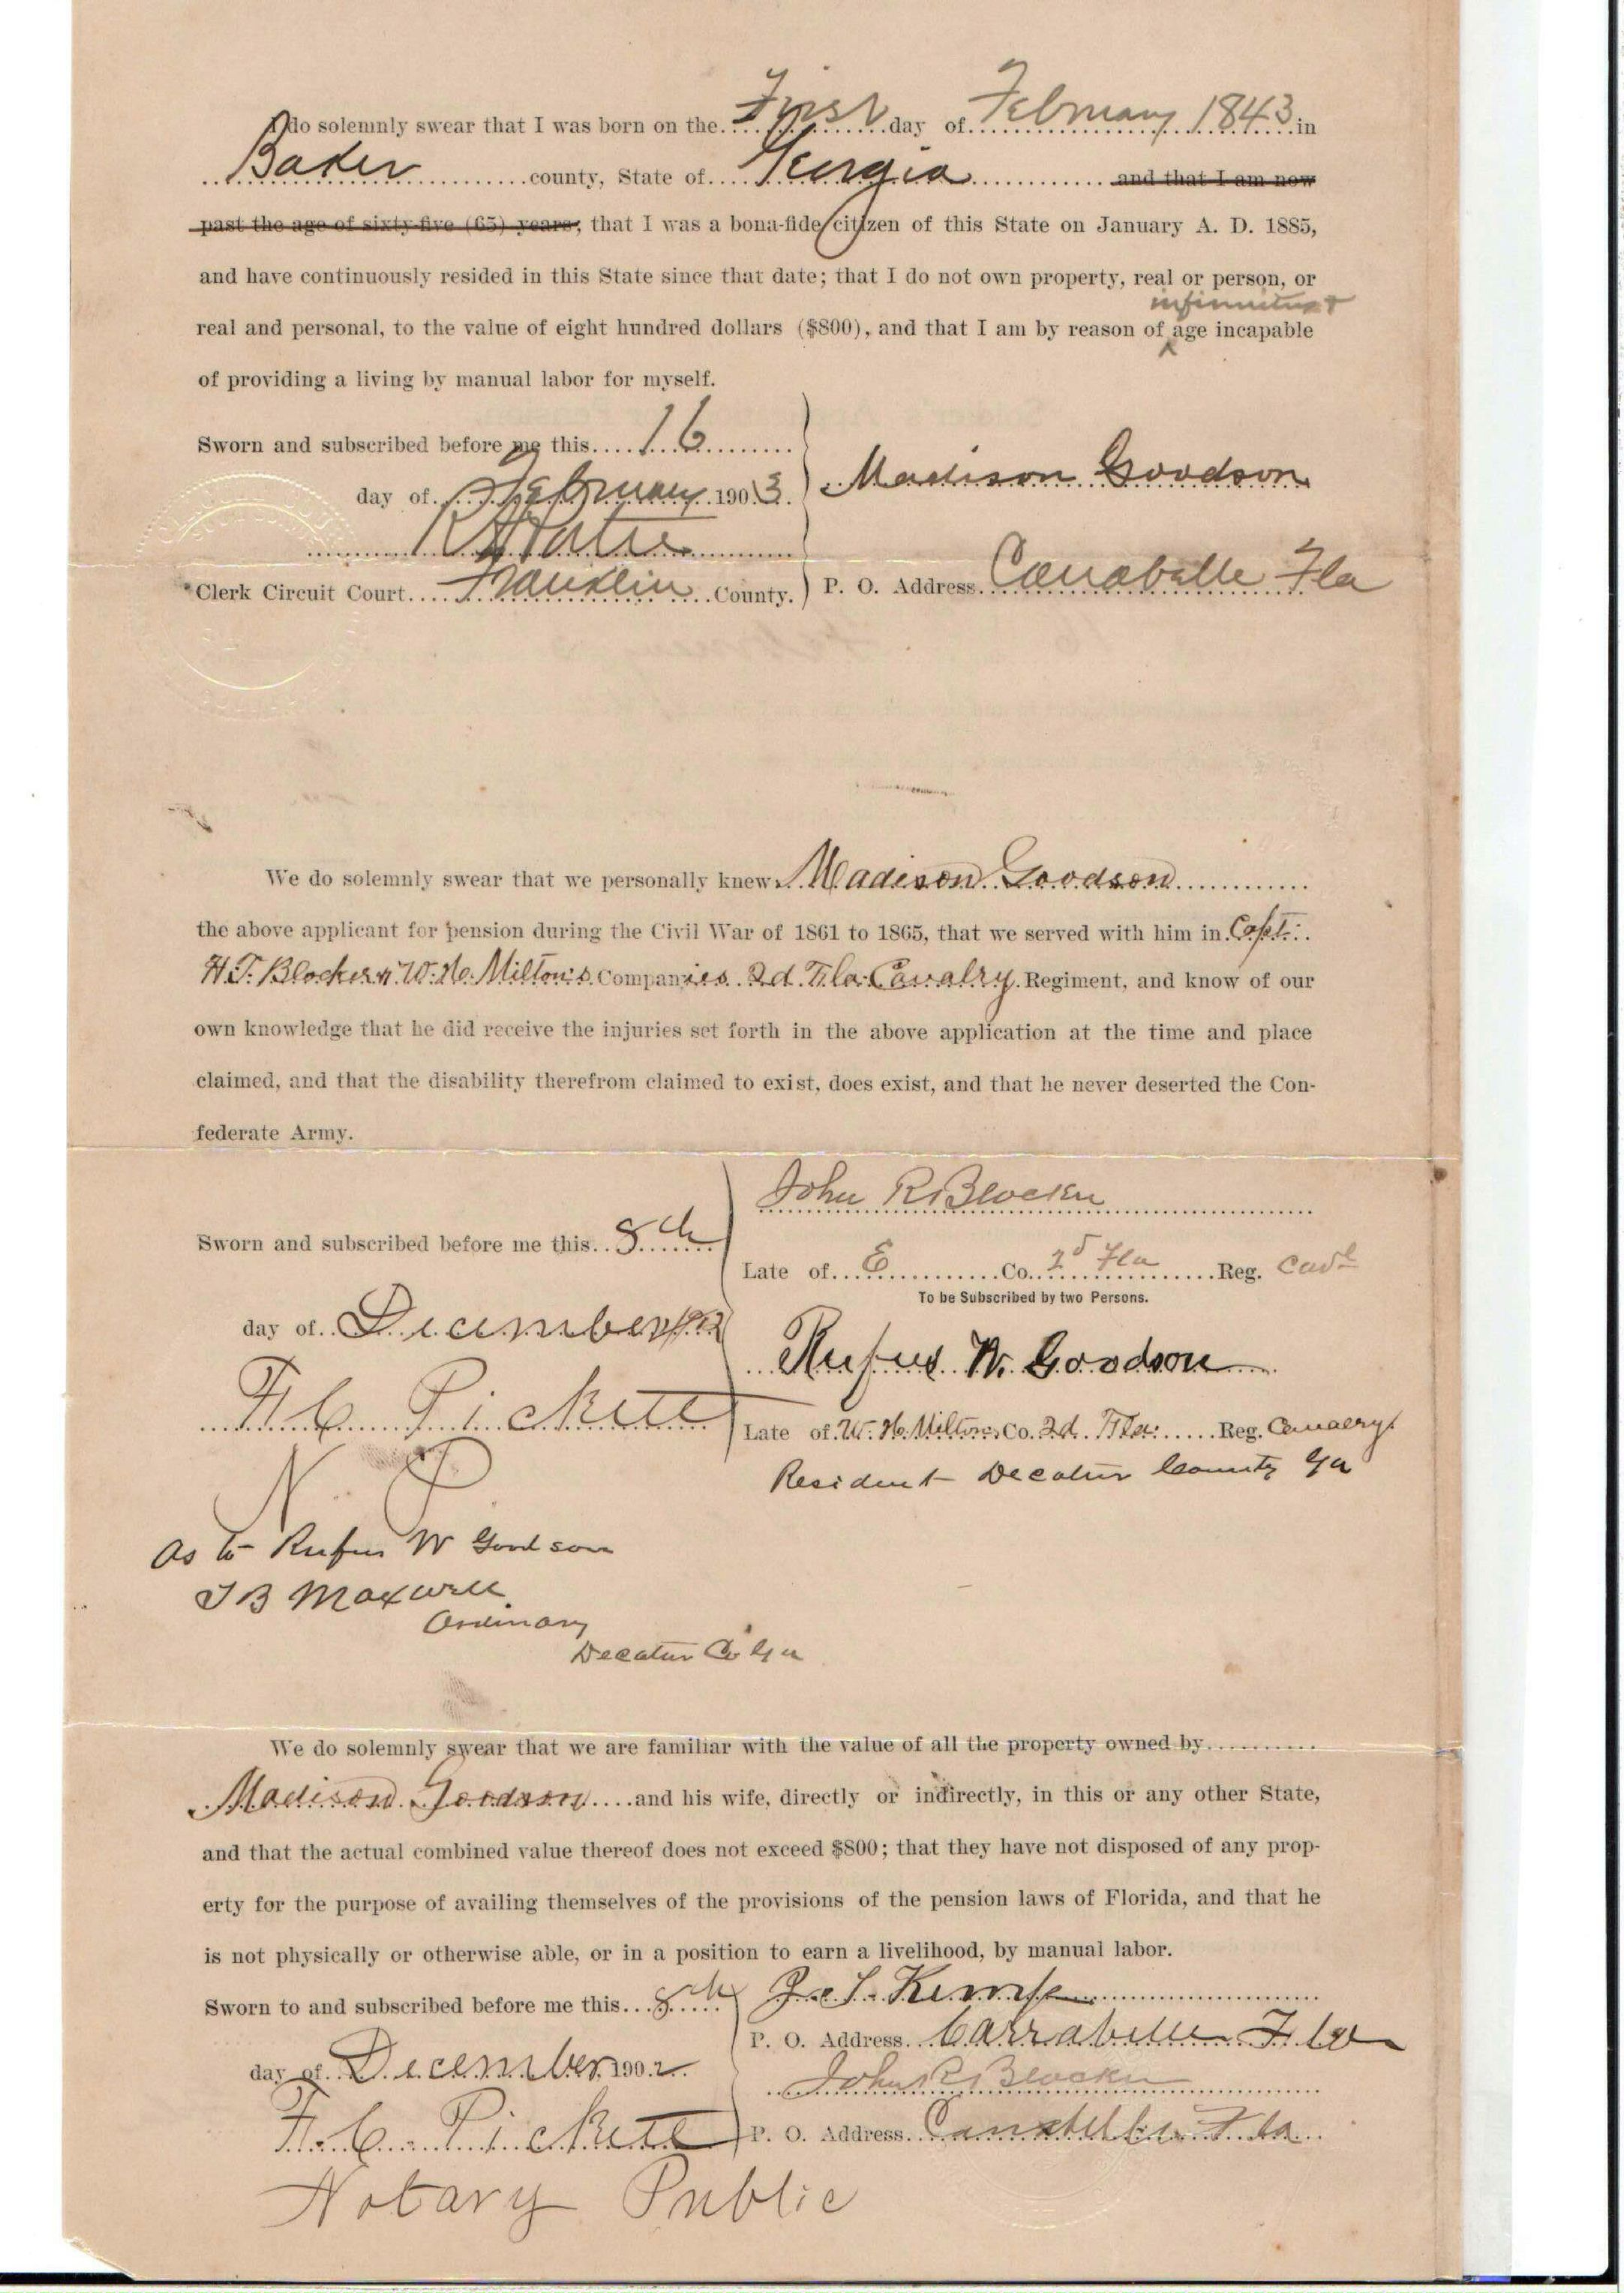 I do solemnly swear that I was born on the First day of February 1843 in
Baker county, State of Georgia and that I am now
past the age of sixty-five (65) years; that I was a bona-fide citizen of this State on January A. D. 1885,
and have continuously resided in this State since that date; that I do not own property, real or person, or
infirmities &
real and personal, to the value of eight hundred dollars ($800), and that I am by reason of ^ age incapable
of providing a living by manual labor for myself.
Sworn and subscribed before me this 16
day of February 1903. Madison Goodson
Clerk Circuit Court Franklin County. P. O. Address Carrabelle Fla
We do solemnly swear that we personally knew Madison Goodson
the above applicant for pension during the Civil War of 1861 to 1865, that we served with him in Capt.
H. T. Blocker & W. H. Milton's Companies 2d. Fla. Cavalry Regiment, and know of our
own knowledge that he did receive the injuries set forth in the above application at the time and place
claimed, and that the disability therefrom claimed to exist, does exist, and that he never deserted the Con-
federate Army.
John R Blocker
Sworn and subscribed before me this 8th
Late of E Co. 2d Fla Reg. Cavl
To be Subscribed by two Persons.
day of December 1902
Rufus W. Goodson
F. C. Pickett
Late of W. H. Milton's Co. 2d. Fla. Reg. Cavalry
Resident Decatur County Ga
N. P.
As to Rufus W Goodson
T B Maxwell
Ordinary
Decatur Co Ga
We do solemnly swear that we are familiar with the value of all the property owned by
Madison Goodson and his wife, directly or indirectly, in this or any other State,
and that the actual combined value thereof does not exceed $800; that they have not disposed of any prop-
erty for the purpose of availing themselves of the provisions of the pension laws of Florida, and that he
is not physically or otherwise able, or in a position to earn a livelihood, by manual labor.
Sworn to and subscribed before me this 8th
Kemp
P. O. Address Carrabelle Fla
day of December, 1902
John R Blocker
F. C. Pickett
P. O. Address Carrabelle Fla
Notary Public